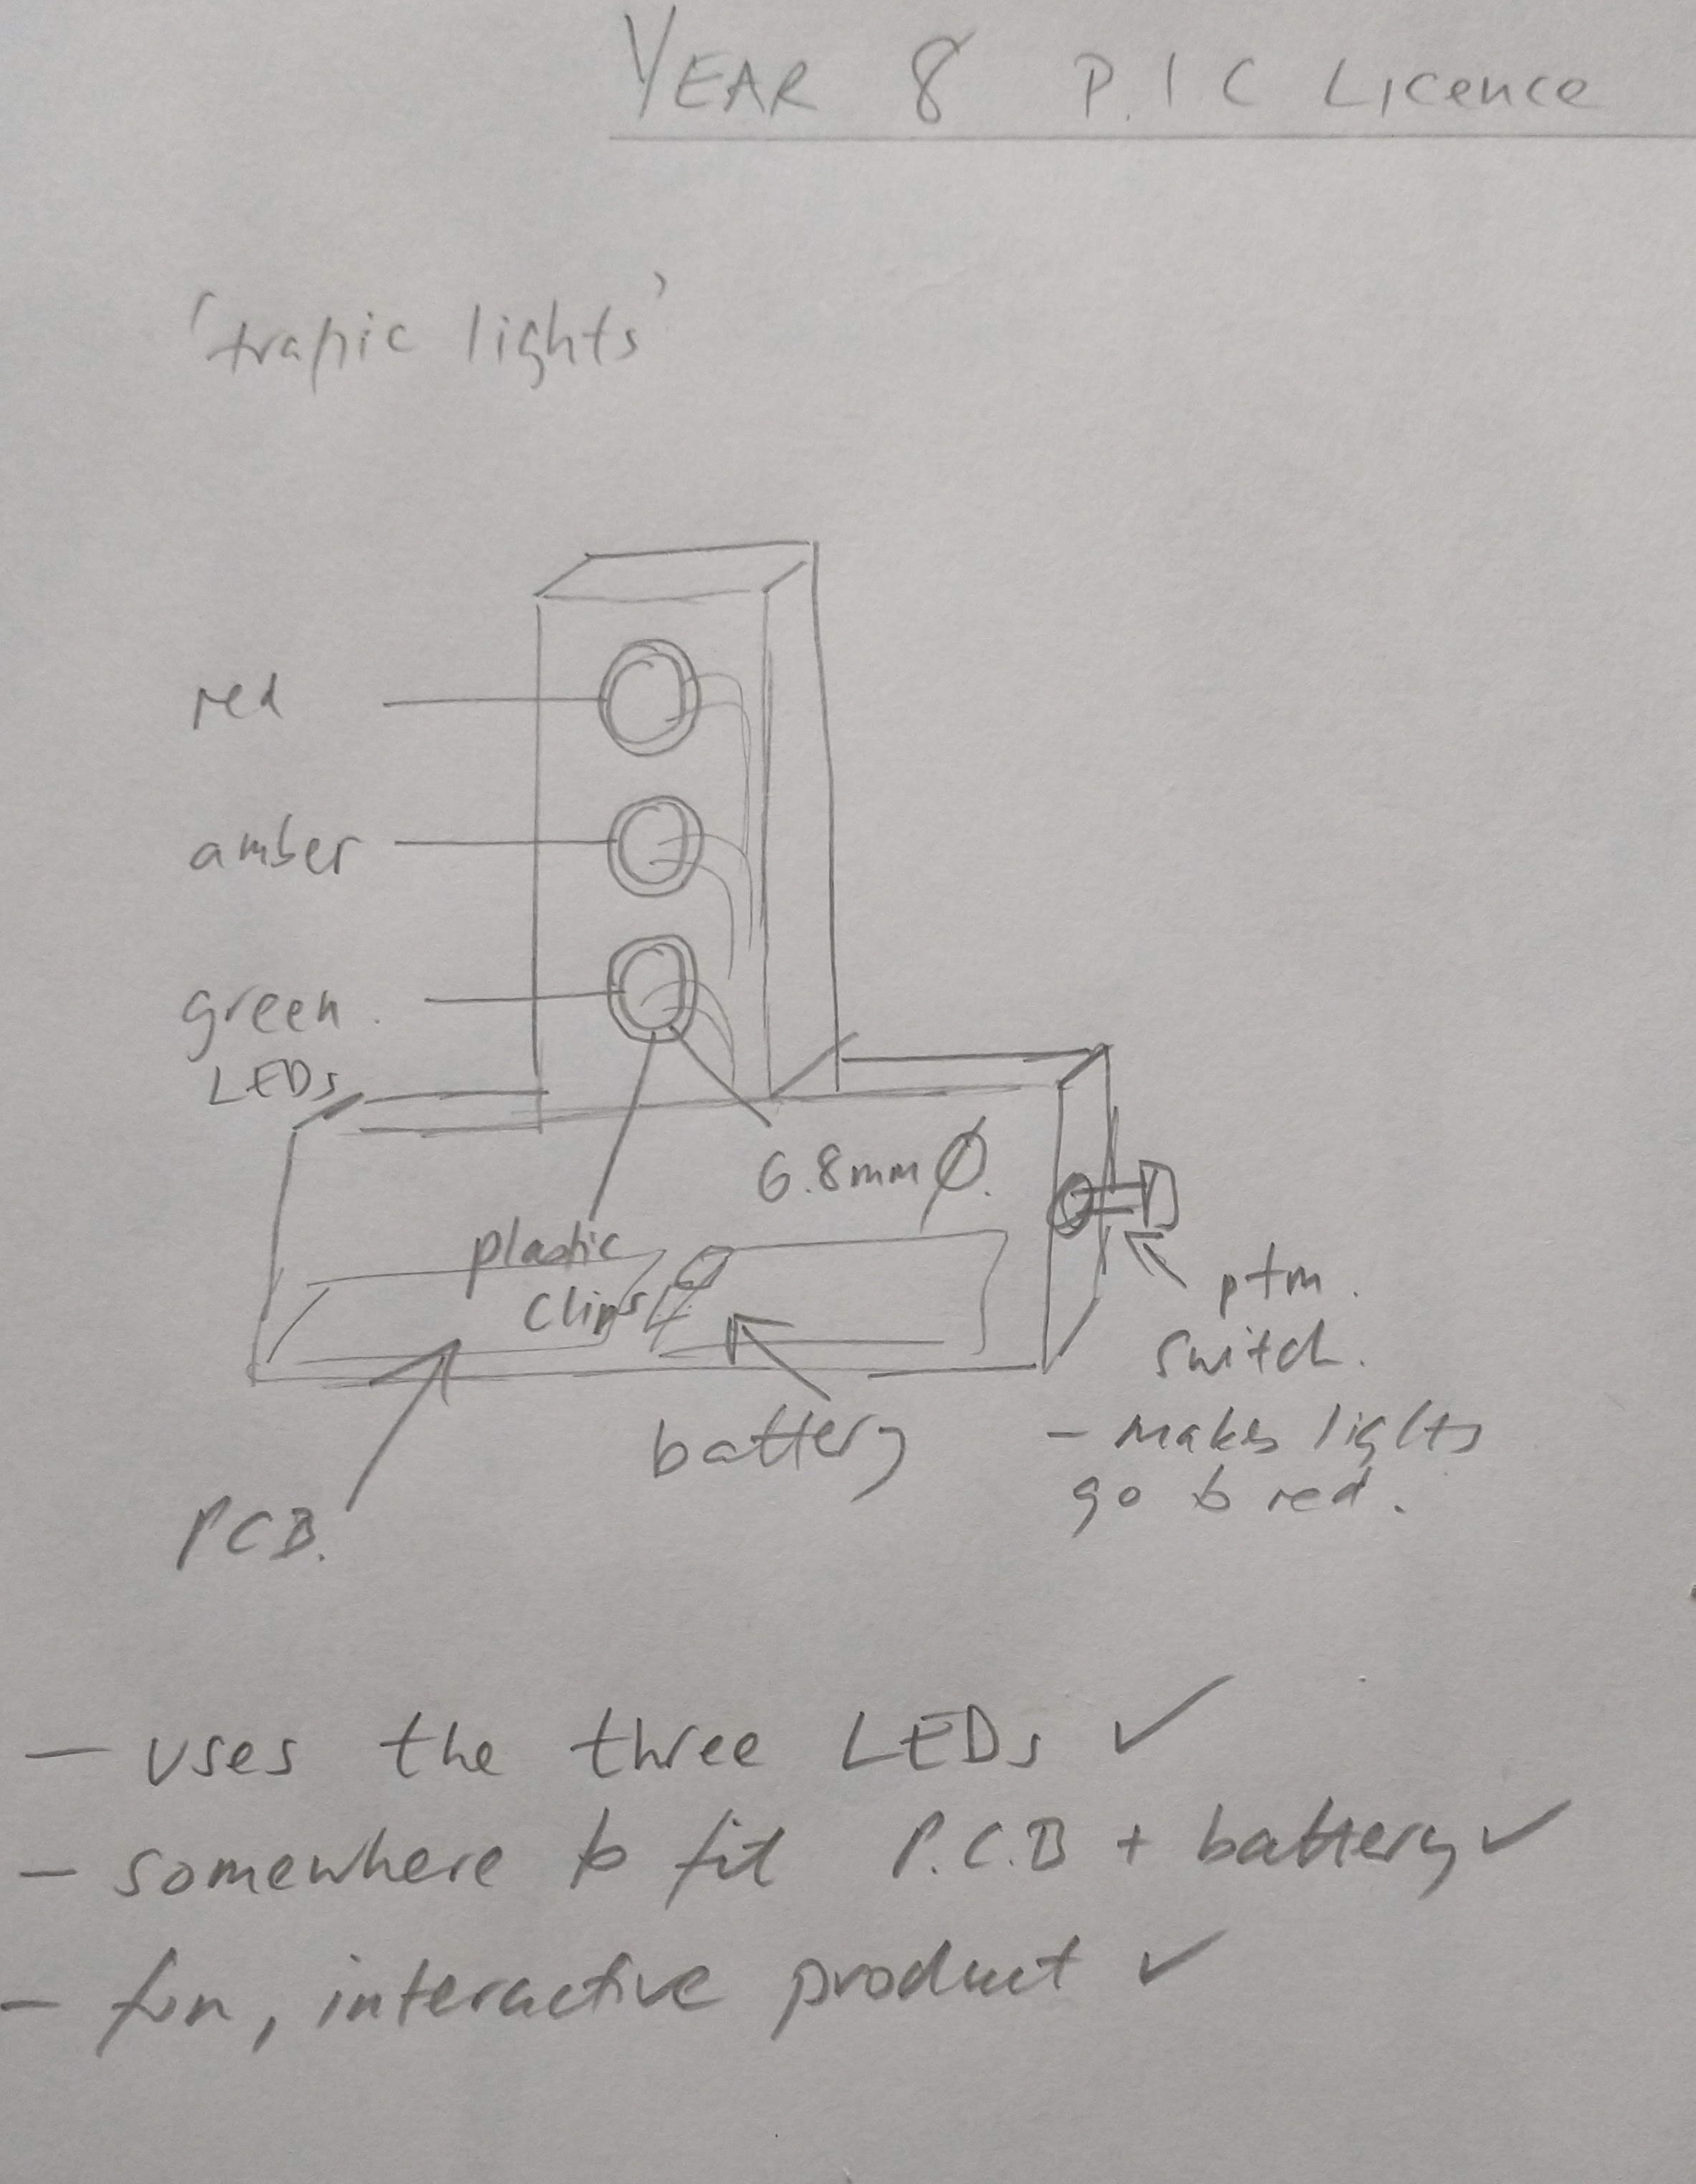 YEAR 8 P.I C Licence
'traffic lights'
red
amber
green.
LEDs
6.8mm Ø.
plastic
clips
ptm.
switch.
- makes lights
go to red.
battery
PCB.
- uses the three LEDs ✓
- somewhere to fit P.C.B + battery ✓
- fun, interactive product ✓